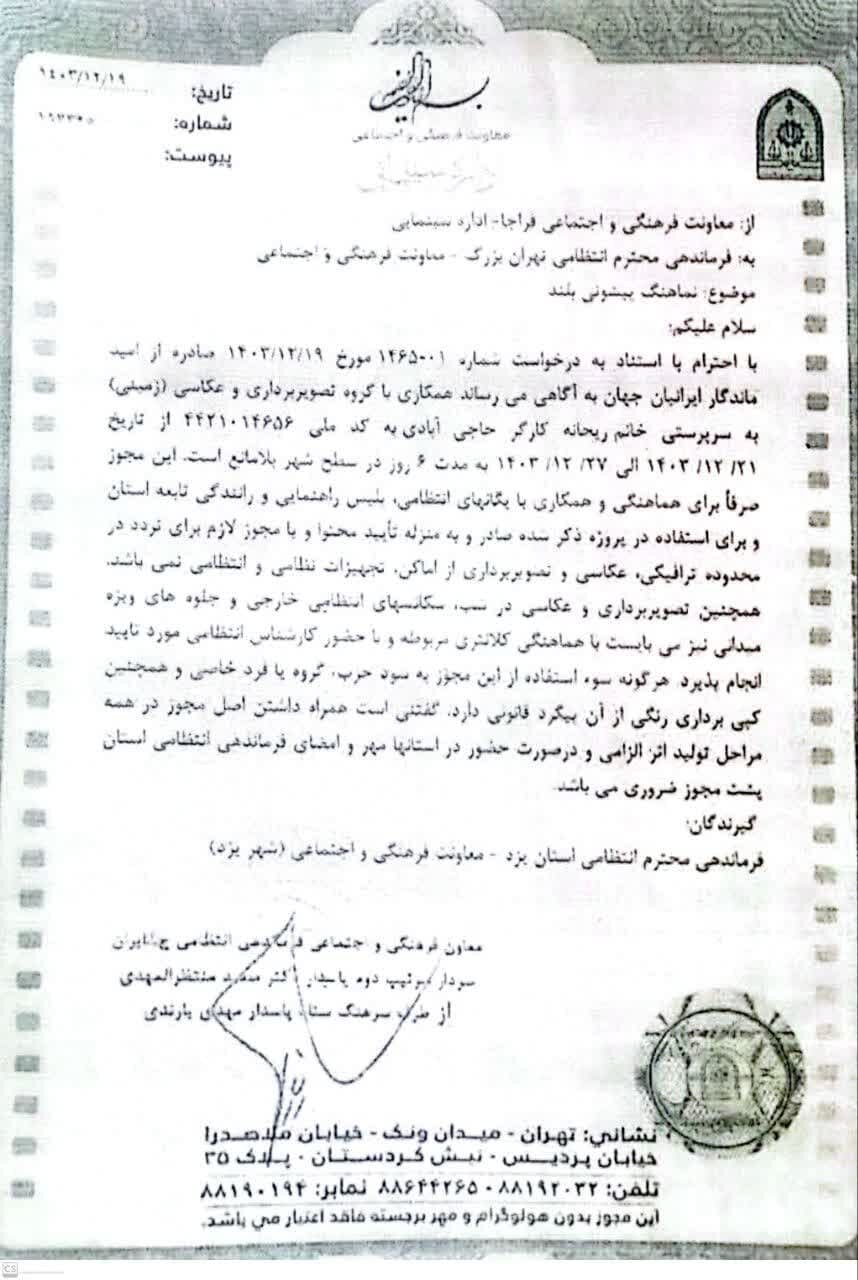 تاریخ: ۱۴۰۳/۱۲/۱۹
شماره:
پیوست:
معاونت فرهنگی و اجتماعی
از: معاونت فرهنگی و اجتماعی فراجا- اداره سینمایی
به: فرماندهی محترم انتظامی تهران بزرگ - معاونت فرهنگی و اجتماعی
موضوع: نماهنگ پیشونی بلند
سلام علیکم:
با احترام با استناد به درخواست شماره ۱۴۶۵۰۰۱ مورخ ۱۴۰۳/۱۲/۱۹ صادره از امید
ماندگار ایرانیان جهان به آگاهی می رساند همکاری با گروه تصویربرداری و عکاسی (زمینی)
به سرپرستی خانم ریحانه کارگر حاجی آبادی به کد ملی ۴۴۲۱۰۱۴۶۵۶ از تاریخ
۱۴۰۳/۱۲/۲۱ الی ۱۴۰۳/۱۲/۲۷ به مدت ۶ روز در سطح شهر بلامانع است. این مجوز
صرفاً برای هماهنگی و همکاری با یگانهای انتظامی، پلیس راهنمایی و رانندگی تابعه استان
و برای استفاده در پروژه ذکر شده صادر و به منزله تأیید محتوا و یا مجوز لازم برای تردد در
محدوده ترافیکی، عکاسی و تصویربرداری از اماکن، تجهیزات نظامی و انتظامی نمی باشد.
همچنین تصویربرداری و عکاسی در شب، سکانسهای انتظامی خارجی و جلوه های ویژه
میدانی نیز می بایست با هماهنگی کلانتری مربوطه و با حضور کارشناس انتظامی مورد تایید
انجام پذیرد. هرگونه سوء استفاده از این مجوز به سود حزب، گروه یا فرد خاصی و همچنین
کپی برداری رنگی از آن پیگرد قانونی دارد. گفتنی است همراه داشتن اصل مجوز در همه
مراحل تولید اثر الزامی و درصورت حضور در استانها مهر و امضای فرماندهی انتظامی استان
پشت مجوز ضروری می باشد.
گیرندگان:
فرماندهی محترم انتظامی استان یزد - معاونت فرهنگی و اجتماعی (شهر یزد)
معاون فرهنگی و اجتماعی فرماندهی انتظامی ج.ا.ایران
سردار سرتیپ دوم پاسدار دکتر سعید منتظرالمهدی
از طرف سرهنگ ستاد پاسدار مهدی یارندی
نشانی: تهران - میدان ونک - خیابان ملاصدرا
خیابان پردیس - نبش کردستان - پلاک ۳۵
تلفن: ۸۸۱۹۲۰۳۲ - ۸۸۶۴۴۲۶۵ نمابر: ۸۸۱۹۰۱۹۴
این مجوز بدون هولوگرام و مهر برجسته فاقد اعتبار می باشد.
CS